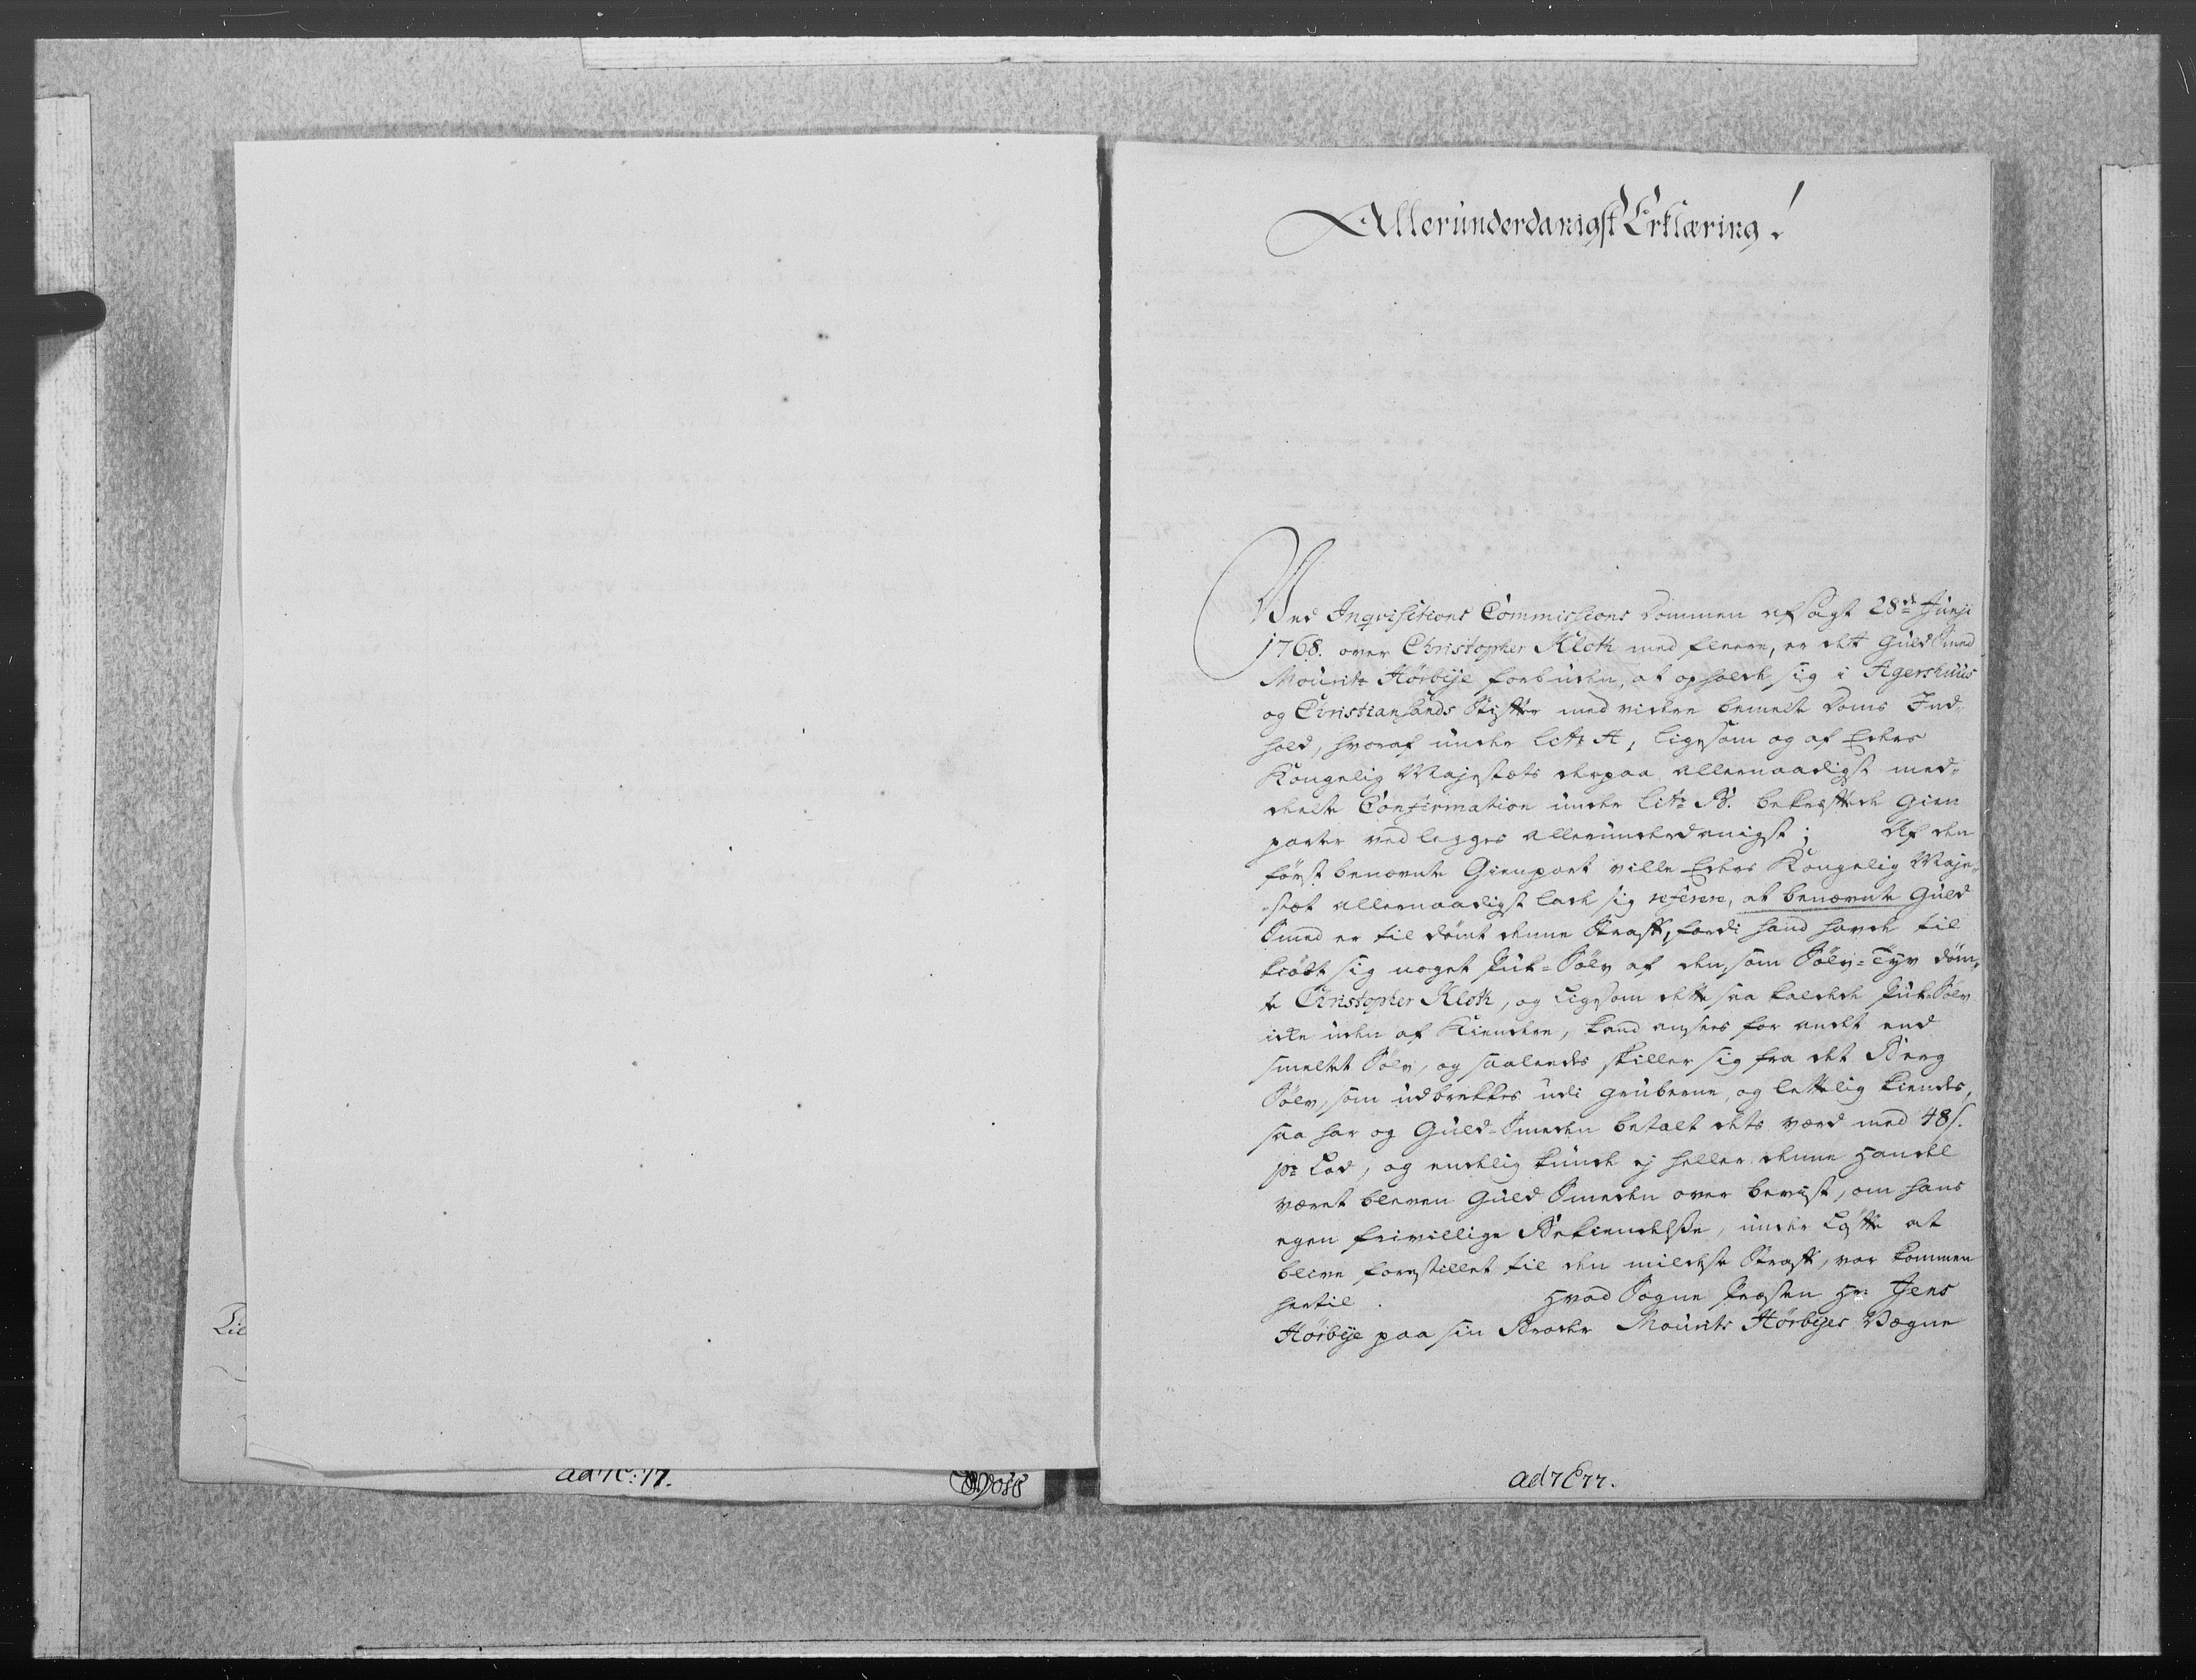 Allerunderdanigst Erklæring!
Ved Inqvisitions Commissions Dommen afsagt 28de Junji
1768. over Christopher Kloth med fleere, er dett Guld Smed
Mouritz Hørbÿe forbuden, at opholde sig i Agershuus
og Christiansands Stifter med videre bemelte Doms Ind-
hold, hvoraf under Litr A, ligesom og af Eders
Kongelig Majestæts derpaa allernaadigst med-
deelte Confirmation under Litr B. bekræftede Gien
parter ved legges allerunderdanigst; Af den
først benævnte Gienpart ville Eders Kongelig Maje-
-stæt allernaadigst lade sig referere, at benævnte Guld
Smed er til dømt denne Straff, fordi hand havde til
kiøbt sig noget Puk-Sølv af den, som Sølv-Tyv døm-
te Christopher Kloth, og ligesom dette saa kaldede Puk-Sølv
icke uden af Kiendere, kand ansees for andet end
smeltet Sølv, og saaledes skiller sig fra det Berg
Sølv, som udbrekkes udi Gruberne, og lettelig kiendes,
saa har og Guld-Smeden betalt dets værd med 48 s.
pr Lod, og endelig kunde ej heller denne Handel
været bleven Guld Smeden over bevist, om hans
egen frivillige Bekiendelße, under Løfte at
blive forestillet til den mildeste Straff, var kommen
hertil. Hvad Sogne Præsten Hr: Jens
Hørbÿe paa sin Broder Mourits Hørbÿes Vægne
ad 7 C 77.
Lit
ad 7 C: 77.